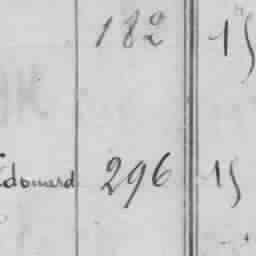 182 15
Edouard 296 15